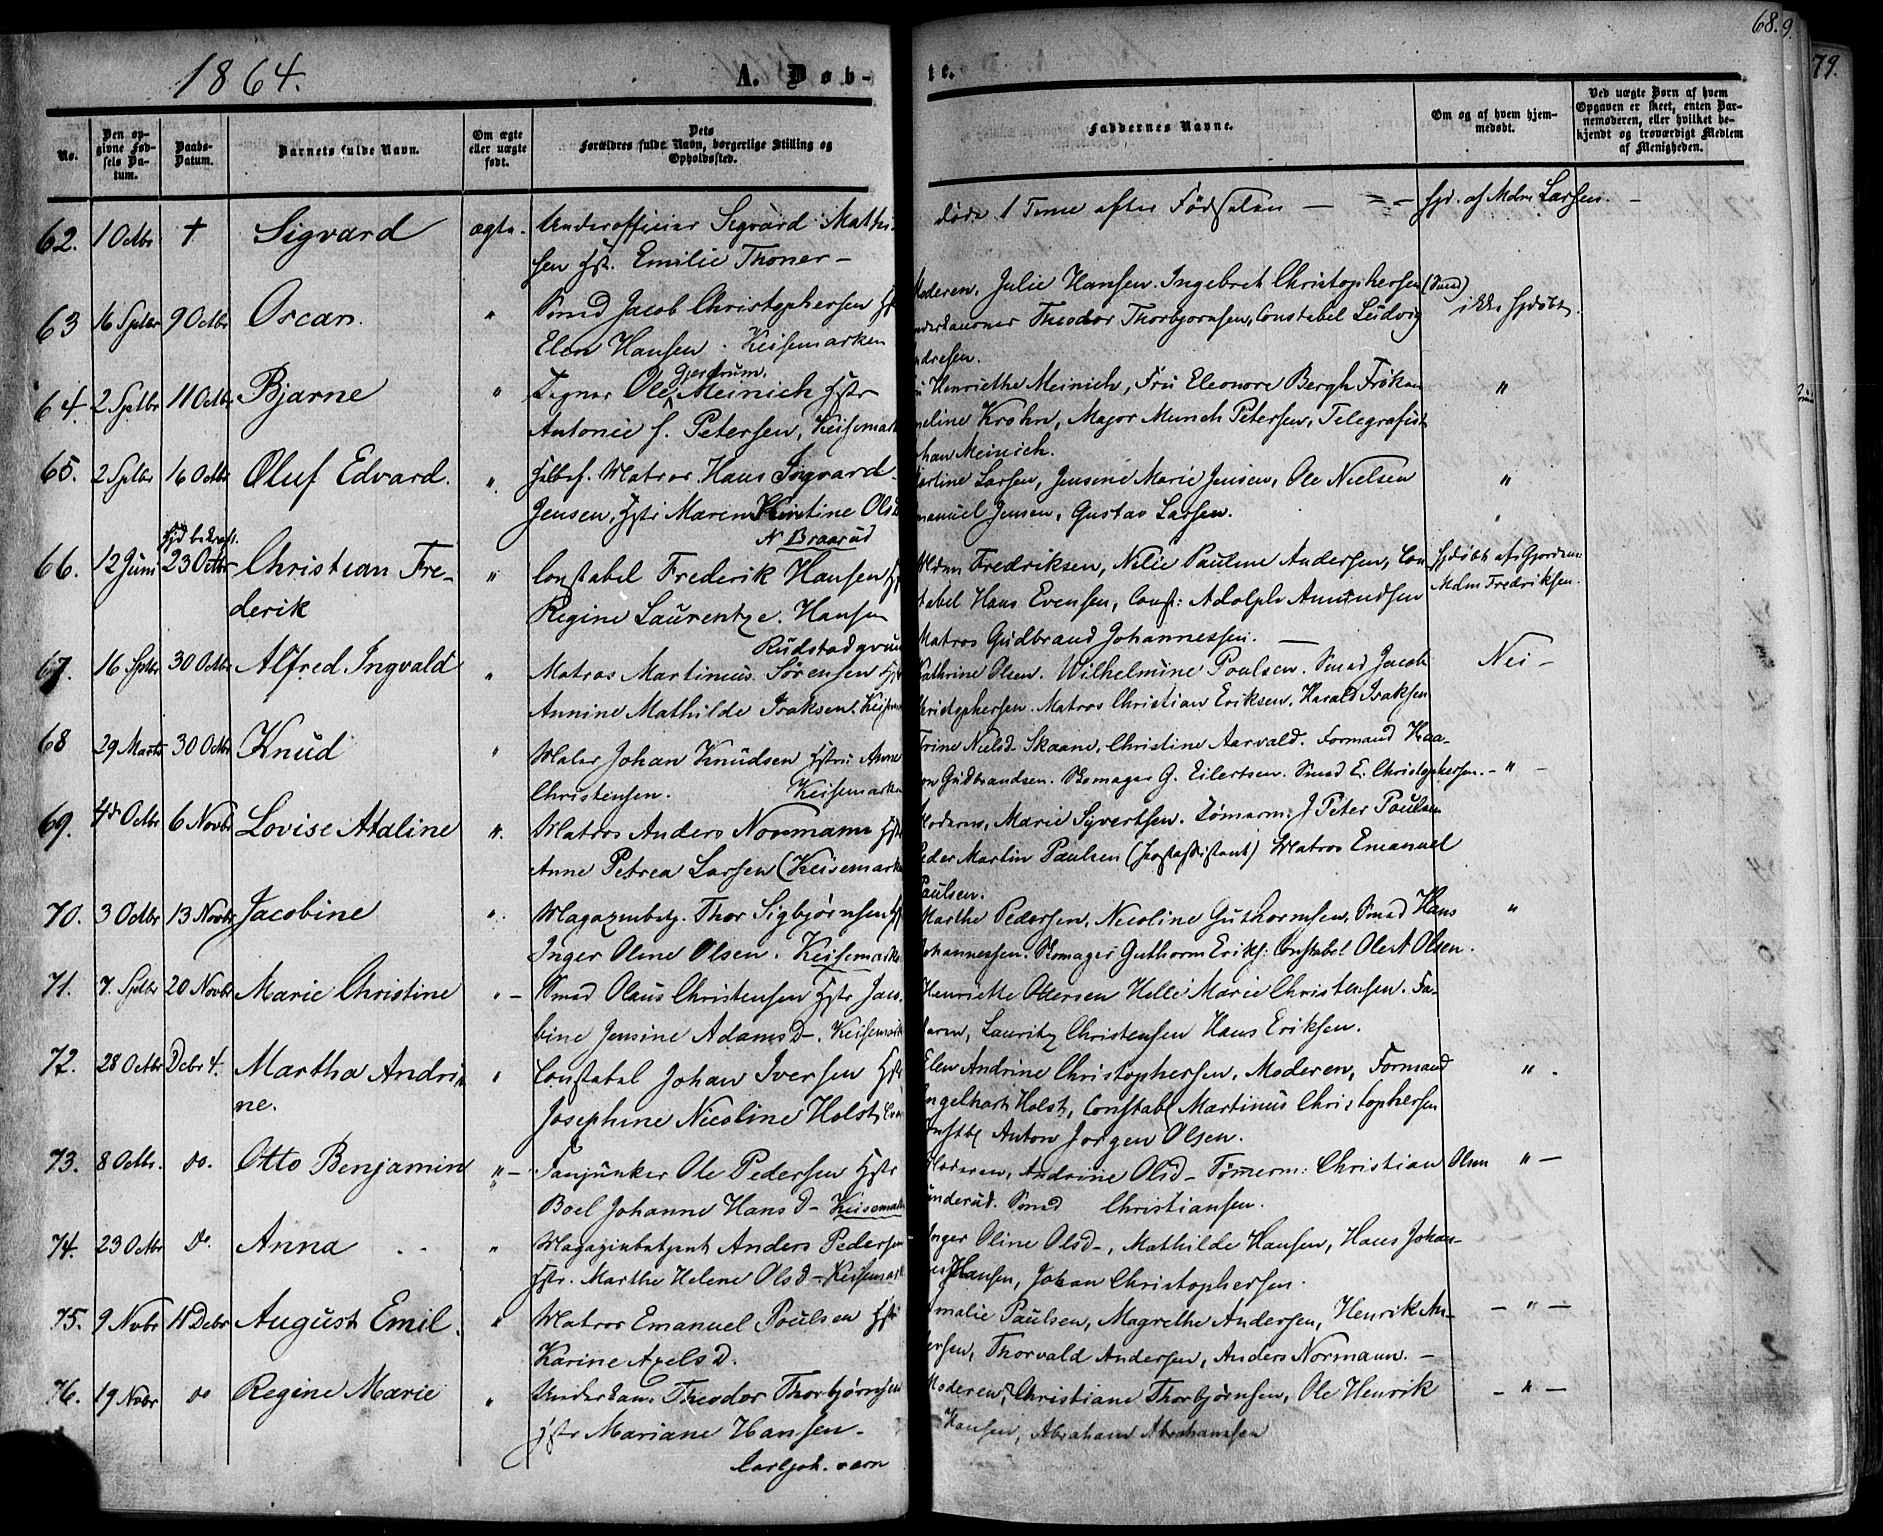 68. 9.
79.
1864.
A. Døb-
te.
No.
Den op-
givne Fød-
sels Da-
tum.
Daabs-
Datum.
Barnets fulde Navn.
Om ægte
eller uægte
født.
Dets
Forældres fulde Navn, borgerlige Stilling og
Opholdssted.
Faddernes Navne.
Om og af hvem hjem-
medøbt.
Ved uægte Børn af hvem
Opgaven er skeet, enten Bar-
nemoderen, eller hvilket be-
kjendt og troværdigt Medlem
af Menigheden.
62. 1 Octbr † Sigvard ægte. Underofficier Sigvard Mathi-
sen Hstr. Emilie Thoner -
døde 1 Time efter Fødselen — hjd. af Mdm Larsen. -
63 16 Sptbr 9 Octbr Oscar. " Smed Jacob Christophersen Hstr
Elen Hansen. Keisemarken
Moderen, Julie Hansen. Ingebret Christophersen (Smed) ikke hjdøbt.
Theodor Thorbjørnsen, Constabel Ludvig
ndresen.
64. 2 Sptbr 11 Octbr Bjarne " Tegner Ole Gjerdrum. Meinich Hstr
Antonie f. Petersen, Keisemark
Henriethe Meinich, Fru Eleonore Bergh Frøken "
meline Krohn, Major Munch Petersen, Telegrafist
ohan Meinich.
65. 2 Sptbr 16 Octbr Oluf Edvard. " Matros Hans Sigvard
Jensen, Hstr Maren Kirstine Olsd
N Braarud
artine Larsen, Jensine Marie Jensen, Ole Nielsen "
manuel Jensen, Gustav Larsen.
66. 12 Juni 23 Octbr Christian Fre- " Constabel Frederik Hansen Hstr
derik Regine Laurentze. Hansen
Rudstadgrund
Mdm Fredriksen, Nilie Pauline Andersen, Con hjdøbt af Gjordem:
stabel Hans Evensen, Const: Adolph Amundsen Mdm Fredriksen.
Matros Gudbrand Johannessen. —
67. 16 Sptbr 30 Octbr Alfred Ingvald " Matros Martinius Sørensen Hstr
Annine Mathilde Isaksen. Keisem
Kathrine Olsen. Wilhelmine Poulsen. Smed Jacob Nei -
hristophersen. Matros Christian Eriksen. Harald Isaksen
68 29 Marts 30 Octbr Knud " Maler Johan Knudsen Hstru Anne
Christensen. Keisemarken
Trine Nielsd Skaane, Christine Aarvald. Formand Haa-
on Gudbrandsen. Skomager G. Eilertsen. Smed E. Christophersen. - " -
69. 4de Octbr 6 Novbr Lovise Ataline " Matros Anders Normann Hstr
Anne Petrea Larsen (Keisemarken
Moderen, Marie Syvertsen. Tømerm: J Peter Poulsen
eder Martin Paulsen (Postassistent) Matros Emanuel
Paulsen.
70. 3 Octbr 13 Novbr Jacobine " Magazinbetj. Thor Sigbjørnsen Hstr
Inger Oline Olsen. Keisemark
Marthe Pedersen, Nicoline Guthormsen, Smed Hans "
ohannessen. Skomager Guthorm Eriks: Constabel Ole A Olsen.
71. 7. Sptbr 20 Novbr Marie Christine " - Smed Olaus Christensen Hstr Jaco-
bine Jensine Adamsd -. Keisemark
Henriette Ottersen Helle Marie Christensen. Fa-
deren, Lauritz Christensen Hans Eriksen.
72. 28 Octbr Debr 4. Martha Andri- " Constabel Johan Iversen Hstr
ne. Josephine Nicoline Holst
Elen Andrine Christophersen, Moderen, Formand " -
ngelhart Holst, Constab Martinus Christophersen
onstb Anton Jørgen Olsen.
73. 8 Octbr. do. Otto Benjamin " - Fanjunker Ole Pedersen Hstr
Boel Johanne Hansd - Keisemark
Moderen, Andrine Olsd - Tømerm: Christian Olsen " -
underud. Smed Christiansen.
74. 23 Octbr do. Anna " Magazinbetjent Anders Pedersen
Hstr. Marthe Helene Olsd - Keisemark
nger Oline Olsd -, Mathilde Hansen, Hans Johan-
Hansen, Johan Christophersen.
75. 9 Novbr 11 Debr August Emil. " Matros Emanuel Poulsen Hstr
Karine Axelsd.
malie Paulsen, Magrethe Andersen, Henrik An- - " -
ersen, Thorvald Andersen, Anders Normann. -
76. 19 Novbr do Regine Marie " Underkan. Theodor Thorbjørnsen
Hstr Mariane Hansen -
Carljoh. værn
Moderen, Christiane Thorbjørnsen, Ole Henrik - " -
Hansen, Abraham Abrahamsen